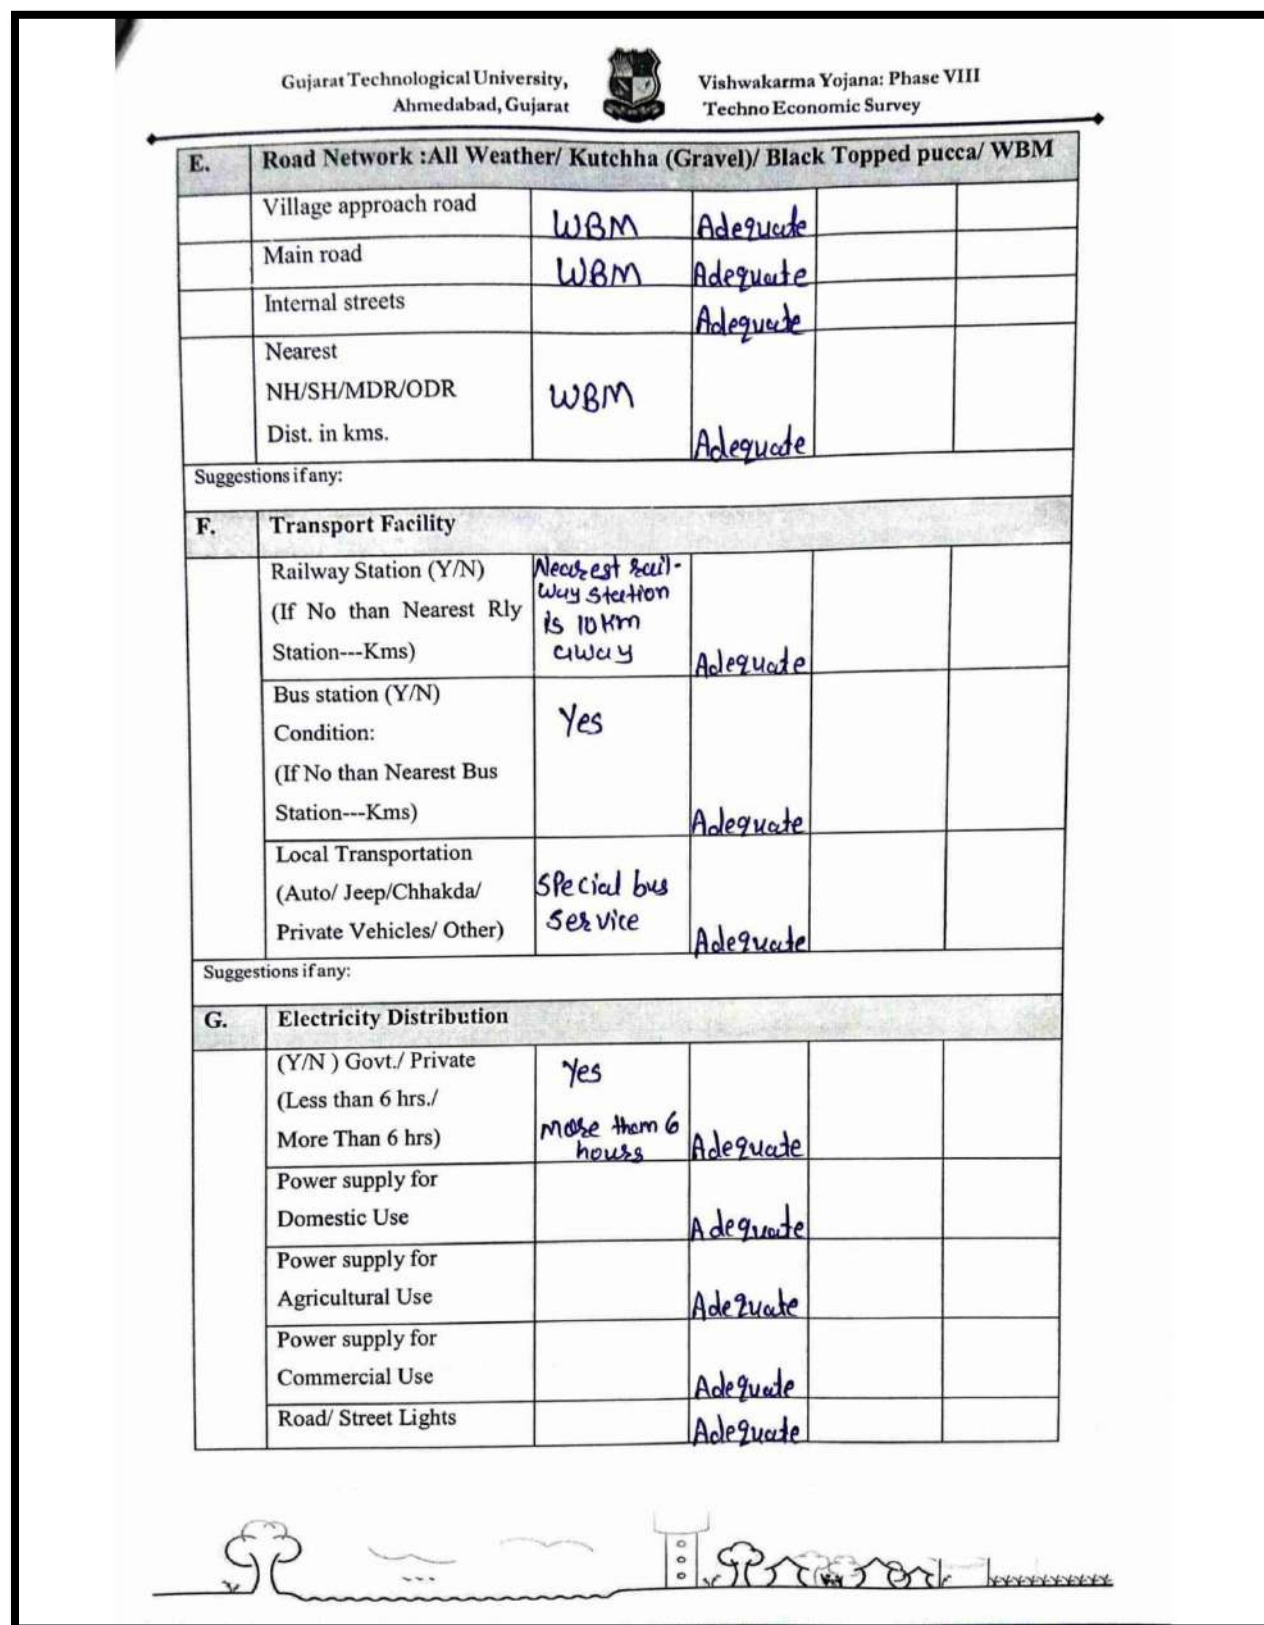 Gujarat Technological University,
Ahmedabad, Gujarat
Vishwakarma Yojana: Phase VIII
Techno Economic Survey
E. Road Network :All Weather/ Kutchha (Gravel)/ Black Topped pucca/ WBM
Village approach road WBM Adequate
Main road WBM Adequate
Internal streets Adequate
Nearest
NH/SH/MDR/ODR WBM
Dist. in kms. Adequate
Suggestions if any:
F. Transport Facility
Railway Station (Y/N)
(If No than Nearest Rly
Station---Kms)
Nearest rail-
way station
is 10 Km
away
Adequate
Bus station (Y/N)
Condition:
(If No than Nearest Bus
Station---Kms)
Yes
Adequate
Local Transportation
(Auto/ Jeep/Chhakda/
Private Vehicles/ Other)
Special bus
service
Adequate
Suggestions if any:
G. Electricity Distribution
(Y/N ) Govt./ Private
(Less than 6 hrs./
More Than 6 hrs)
Yes
more them 6
hours
Adequate
Power supply for
Domestic Use
Adequate
Power supply for
Agricultural Use
Adequate
Power supply for
Commercial Use
Adequate
Road/ Street Lights Adequate